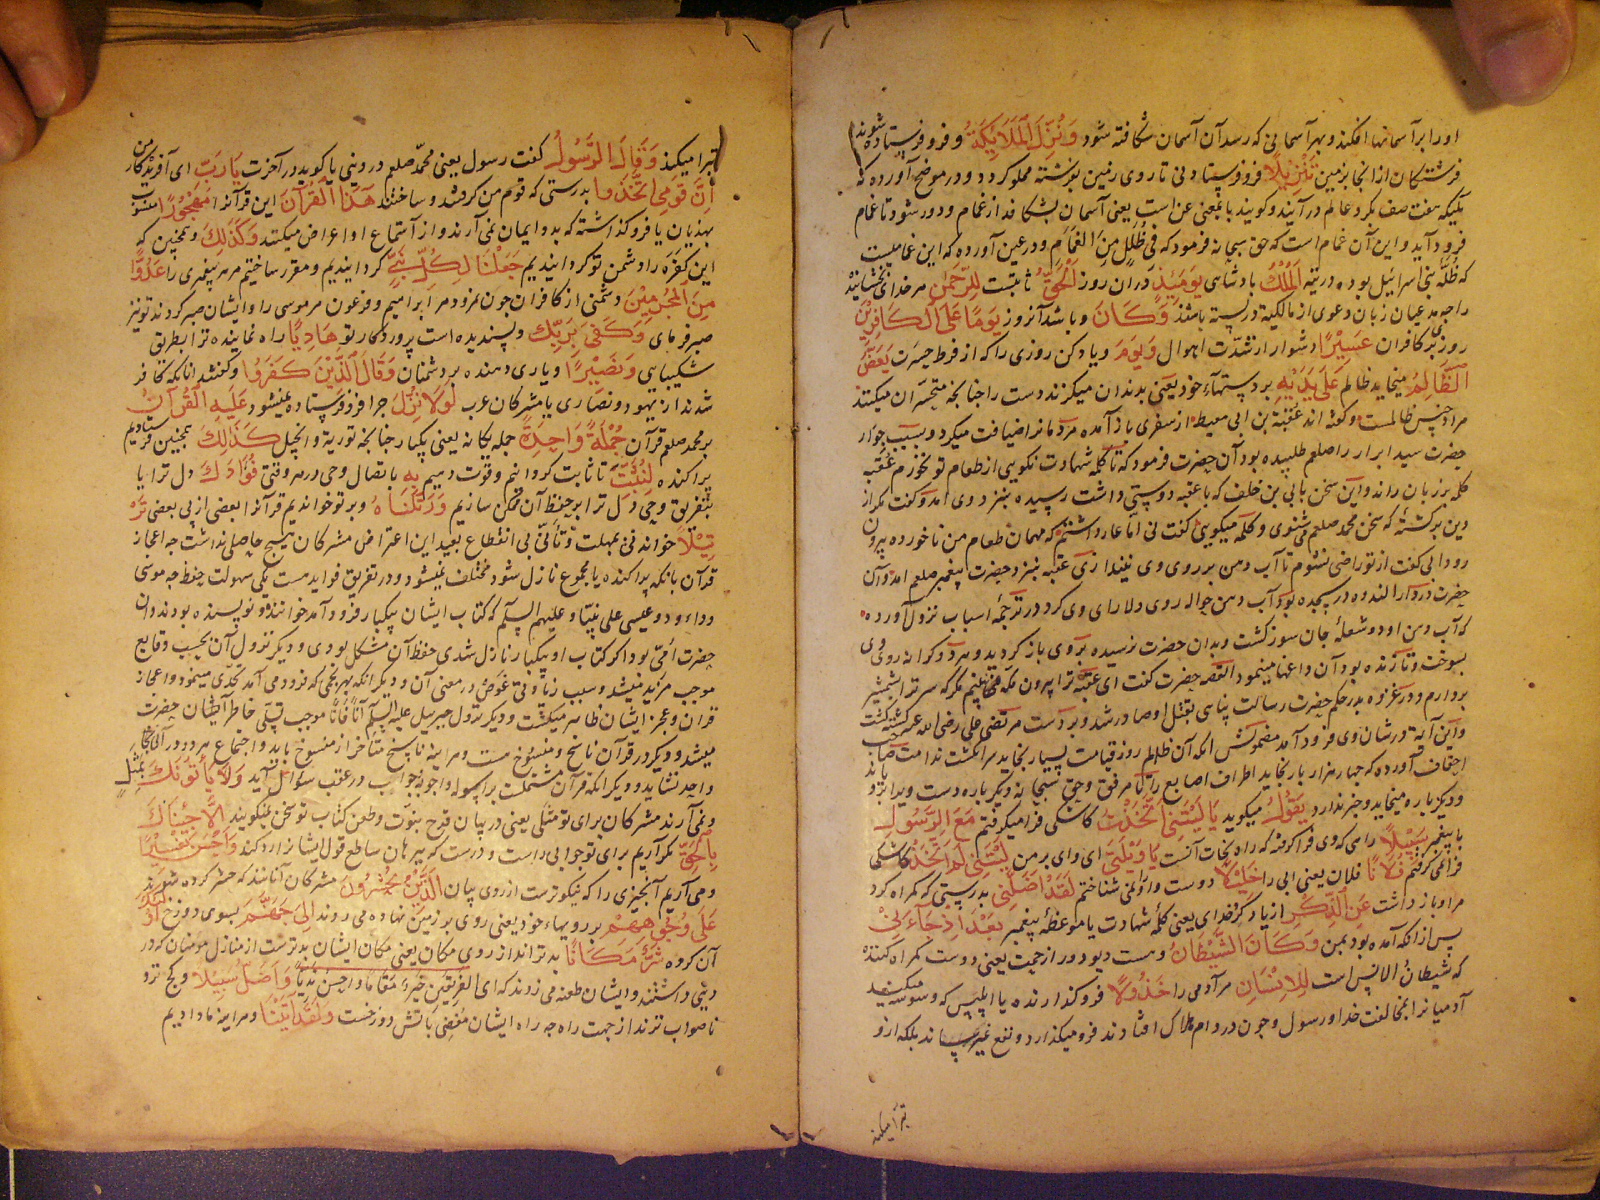 او را بر آسمانها افکند و بهر آسمانی که رسد آن آسمان شکافته شود وَنُزِّلَ الْمَلَائِكَةُ و فرو فرستاده شوند
فرشتکان از انجا بزمین تَنْزِيلًا فرو فرستادنی تا روی زمین بفرشته مملو کردد و در موضح آورده که
ملیکه هفت صف کرد عالم در آیند و کویند با بمعنی عن است یعنی آسمان بشکافد از غمام و دور شود تا غمام
فرود آید و این آن غمام است که حق سبحانه فرمود که فی ظُلَلٍ مِنَ الغَمَامِ و در عین آورده که این غمامیست
که ظُلّه بنی اسرائیل بوده در تیه اَلْمُلْكُ پادشاهی يَوْمَئِذٍ در ان روز الْحَقُّ ثابتست لِلرَّحْمٰنِ مر خدای بخشاینده
را جه مدعیان زبان دعوی از مالکیة در بسته باشند وَكَانَ و باشد آنروز يَوْمًا عَلَى الْكَافِرِينَ
روزی بر کافران عَسِيرًا دشوار از شدّت اهوال وَيَوْمَ و یاد کن روزی را که از فرط حسرت يَعَضُّ
الظَّالِمُ میخاید ظالم عَلٰى يَدَيْهِ بر دستهاء خود یعنی بدندان میکزند دست را جنانجه متحسّران میکنند
مراد جنس ظالمست و کفته اند عُقْبة بن ابی معیط از سفری باز آمده مردمانرا ضیافت میکرد و بسبب جوار
حضرت سید ابرار را صلعم طلبیده بود آن حضرت فرمود که تا کلمه شهادت نکویی از طعام تو نخورم عُقبه
کلمه بر زبان راند و این سخن بابی بن خلف که با عقبه دوستی داشت رسیده بنزد وی آمد و کفت مکر از
دین برکشتهٔ که سخن محمد صلعم می شنوی و کلمه میکویی کفت نی اما عار داشتم که مهمان طعام من ناخورده بیرون
رود ابی کفت از تو راضی نشوم تا آب دهن بر روی وی نیندازی عقبه بنزد حضرت پیغمبر صلعم آمد و آن
حضرت در دارالندوه در سجده بود آب دهن حواله روی دلارای وی کرد در ترجمهٔ اسباب نزول آورده
که آب دهن او دو شعلهٔ جان سوز کشت و بدان حضرت نرسیده بر وی باز کردید و هر دو کرانه روی وی
بسوخت و تا زنده بود آن داغها مینمود القصه حضرت کفت ای عقبه ترا بیرون مکه نبینم مکر که سر ترا بشمشیر
بردارم و در غزوه بدر حکم حضرت رسالت پناهی بقتل او صادر شد و بر دست مرتضی علی رضی الله عنه کشته کشت
و این آیة در شان وی فرود آمد مضمونش انکه آن ظالم روز قیامت بسیار بخاید سر انکشت ندامت صاحب
احقاف آورده که جهار هزار بار بخاید اطراف اصابع را تا مرفق و حق سبحانه دیکر باره دست ویرا برو
و دیکر باره میخاید و خبر ندارد يَقُولُ میکوید يَا لَيْتَنِي اتَّخَذْتُ کاشکی فرا میکرفتم مَعَ الرَّسُولِ
با پیغمبر سَبِيلًا راهی که وی فرا کرفته که راه نجات آنست يَا وَيْلَتٰى ای وای بر من لَيْتَنِي لَمْ اَتَّخِذْ کاشکی
فرا نمی کرفتم فُلَانًا فلان یعنی ابی را خَلِيلًا دوست و او را نمی شناختم لَقَدْ اَضَلَّنِي بدرستی که کمراه کرد
مرا و باز داشت عَنِ الذِّكْرِ از یاد کرد خدای یعنی کلمهٔ شهادت یا موعظهٔ پیغمبر بَعْدَ اِذْ جَاءَنِي
پس از انکه آمده بود بمن وَكَانَ الشَّيْطَانُ و هست دیو دور از رحمت یعنی دوست کمراه کننده
که شیطان الانس است لِلْاِنْسَانِ مر آدمی را خَذُولًا فرو کذارنده یا ابلیس که وسوسه میکند
آدمیانرا بمخالفت خدا و رسول و چون در دام هلاک افتادند فرو میکذارد و نفع نمیرساند بلکه ازو
تبرا میکند
تبرا میکند وَقَالَ الرَّسُولُ کفت رسول یعنی محمد صلعم در دنیی یا کوید در آخرت يَا رَبِّ ای آفریدکار من
اِنَّ قَوْمِي اتَّخَذُوا بدرستی که قوم من کرفتند و ساختند هٰذَا الْقُرْآنَ این قرآنرا مَهْجُورًا منسوب
بهذیان یا فرو کذاشته که بدو ایمان نمی آرند و از استماع او اعراض میکنند وَكَذٰلِكَ و همچنین که
این کفره را دشمن تو کردانیدیم جَعَلْنَا لِكُلِّ نَبِيٍّ کردانیدیم و مقرر ساختیم مر هر پیغمبری را عَدُوًّا
مِنَ الْمُجْرِمِينَ دشمنی از کافران چون نمرود مر ابراهیم و فرعون مر موسی را و ایشان صبر کردند تو نیز
صبر فرمای وَكَفٰى بِرَبِّكَ و پسندیده است پروردکار تو هَادِيًا راه نماینده ترا بطریق
شکیبایی وَنَصِيرًا و یاری دهنده بر دشمنان وَقَالَ الَّذِينَ كَفَرُوا و کفتند انانکه کافر
شدند از یهود و نصاری یا مشرکان عرب لَوْلَا نُزِّلَ جرا فرو فرستاده نمیشود عَلَيْهِ الْقُرْآنُ
بر محمد صلعم قرآن جُمْلَةً وَاحِدَةً جمله یکانه یعنی یکبار جنانجه توریة و انجیل كَذٰلِكَ همچنین فرستادیم
پراکنده لِنُثَبِّتَ تا ثابت کردانیم و قوت دهیم بِهِ باتصال وحی در هر وقتی فُؤَادَكَ دل ترا یا
بتفریق وحی دل ترا بر حفظ آن متمکن سازیم وَرَتَّلْنَاهُ و بر تو خواندیم قرآنرا بعضی از پی بعضی تَرْ
تِيلًا خواندنی بمهلت و تأنّی بی انقطاع بعید این اعتراض مشرکان هیچ حاصلی نداشت جه اعجاز
قرآن بانکه پراکنده یا مجموع نازل شود مختلف نمیشود و در تفریق فوایدست یکی سهولت حفظ جه موسی
و داود و عیسی علی نبینا و علیهم السلم که کتاب ایشان یکبار فرود آمد خواننده و نویسنده بودند و ان
حضرت اُمّی بود اکر کتاب او یکبار نازل شدی حفظ آن مشکل بودی و دیکر نزول آن بحسب وقایع
موجب مزید بینش و سبب زیادتی غوص در معنی آن و دیکر انکه بهر نجمی که فرود می آمد تحدّی مینمود و اعجاز
قران و عجز ایشان ظاهر میکشت و دیکر نزول جبریل علیه السلم آناً فآناً موجب تسلّی خاطر آیشان حضرت
میشد و دیکر در قرآن ناسخ و منسوخ هست و هر اینه ناسخ متأخر از منسوخ باید و اجتماع هر دو در آن یکجا
واحد نشاید و دیکر انکه قرآن مشتملست بر اسوله و اجوبه و جواب در عقب سؤال آید وَلَا يَأْتُونَكَ بِمَثَلٍ
و نمی آرند مشرکان برای تو مثلی یعنی در بیان قدح نبوّت و طعن کتاب تو سخن نمیکویند اِلَّا جِئْنَاكَ
بِالْحَقِّ مکر آریم برای تو جوابی راست و درست که ببرهان ساطع قول ایشانرا رد کند وَاَحْسَنَ تَفْسِيرًا
و می آریم آنچیزی را که نیکوترست از روی بیان اَلَّذِينَ يُحْشَرُونَ مشرکان آنانند که حشر کرده شوند
عَلٰى وُجُوهِهِمْ بر رویهاء خود یعنی روی بر زمین نهاده می روند اِلٰى جَهَنَّمَ بسوی دوزخ اُولٰئِكَ
آن کروه شَرٌّ مَكَانًا بدتراند از روی مکان یعنی مکان ایشان بدترست از منازل مؤمنان که در
دنیی داشتند و ایشان طعنه می زدند که ای الفریقین خیر مقاماً و احسن ندیّاً وَاَضَلُّ سَبِيلًا و کج ترو
ناصواب ترند از جهت راه جه راه ایشان مُفضِی بآتش دوزخست وَلَقَدْ اٰتَيْنَا و هر اینه ما دادیم